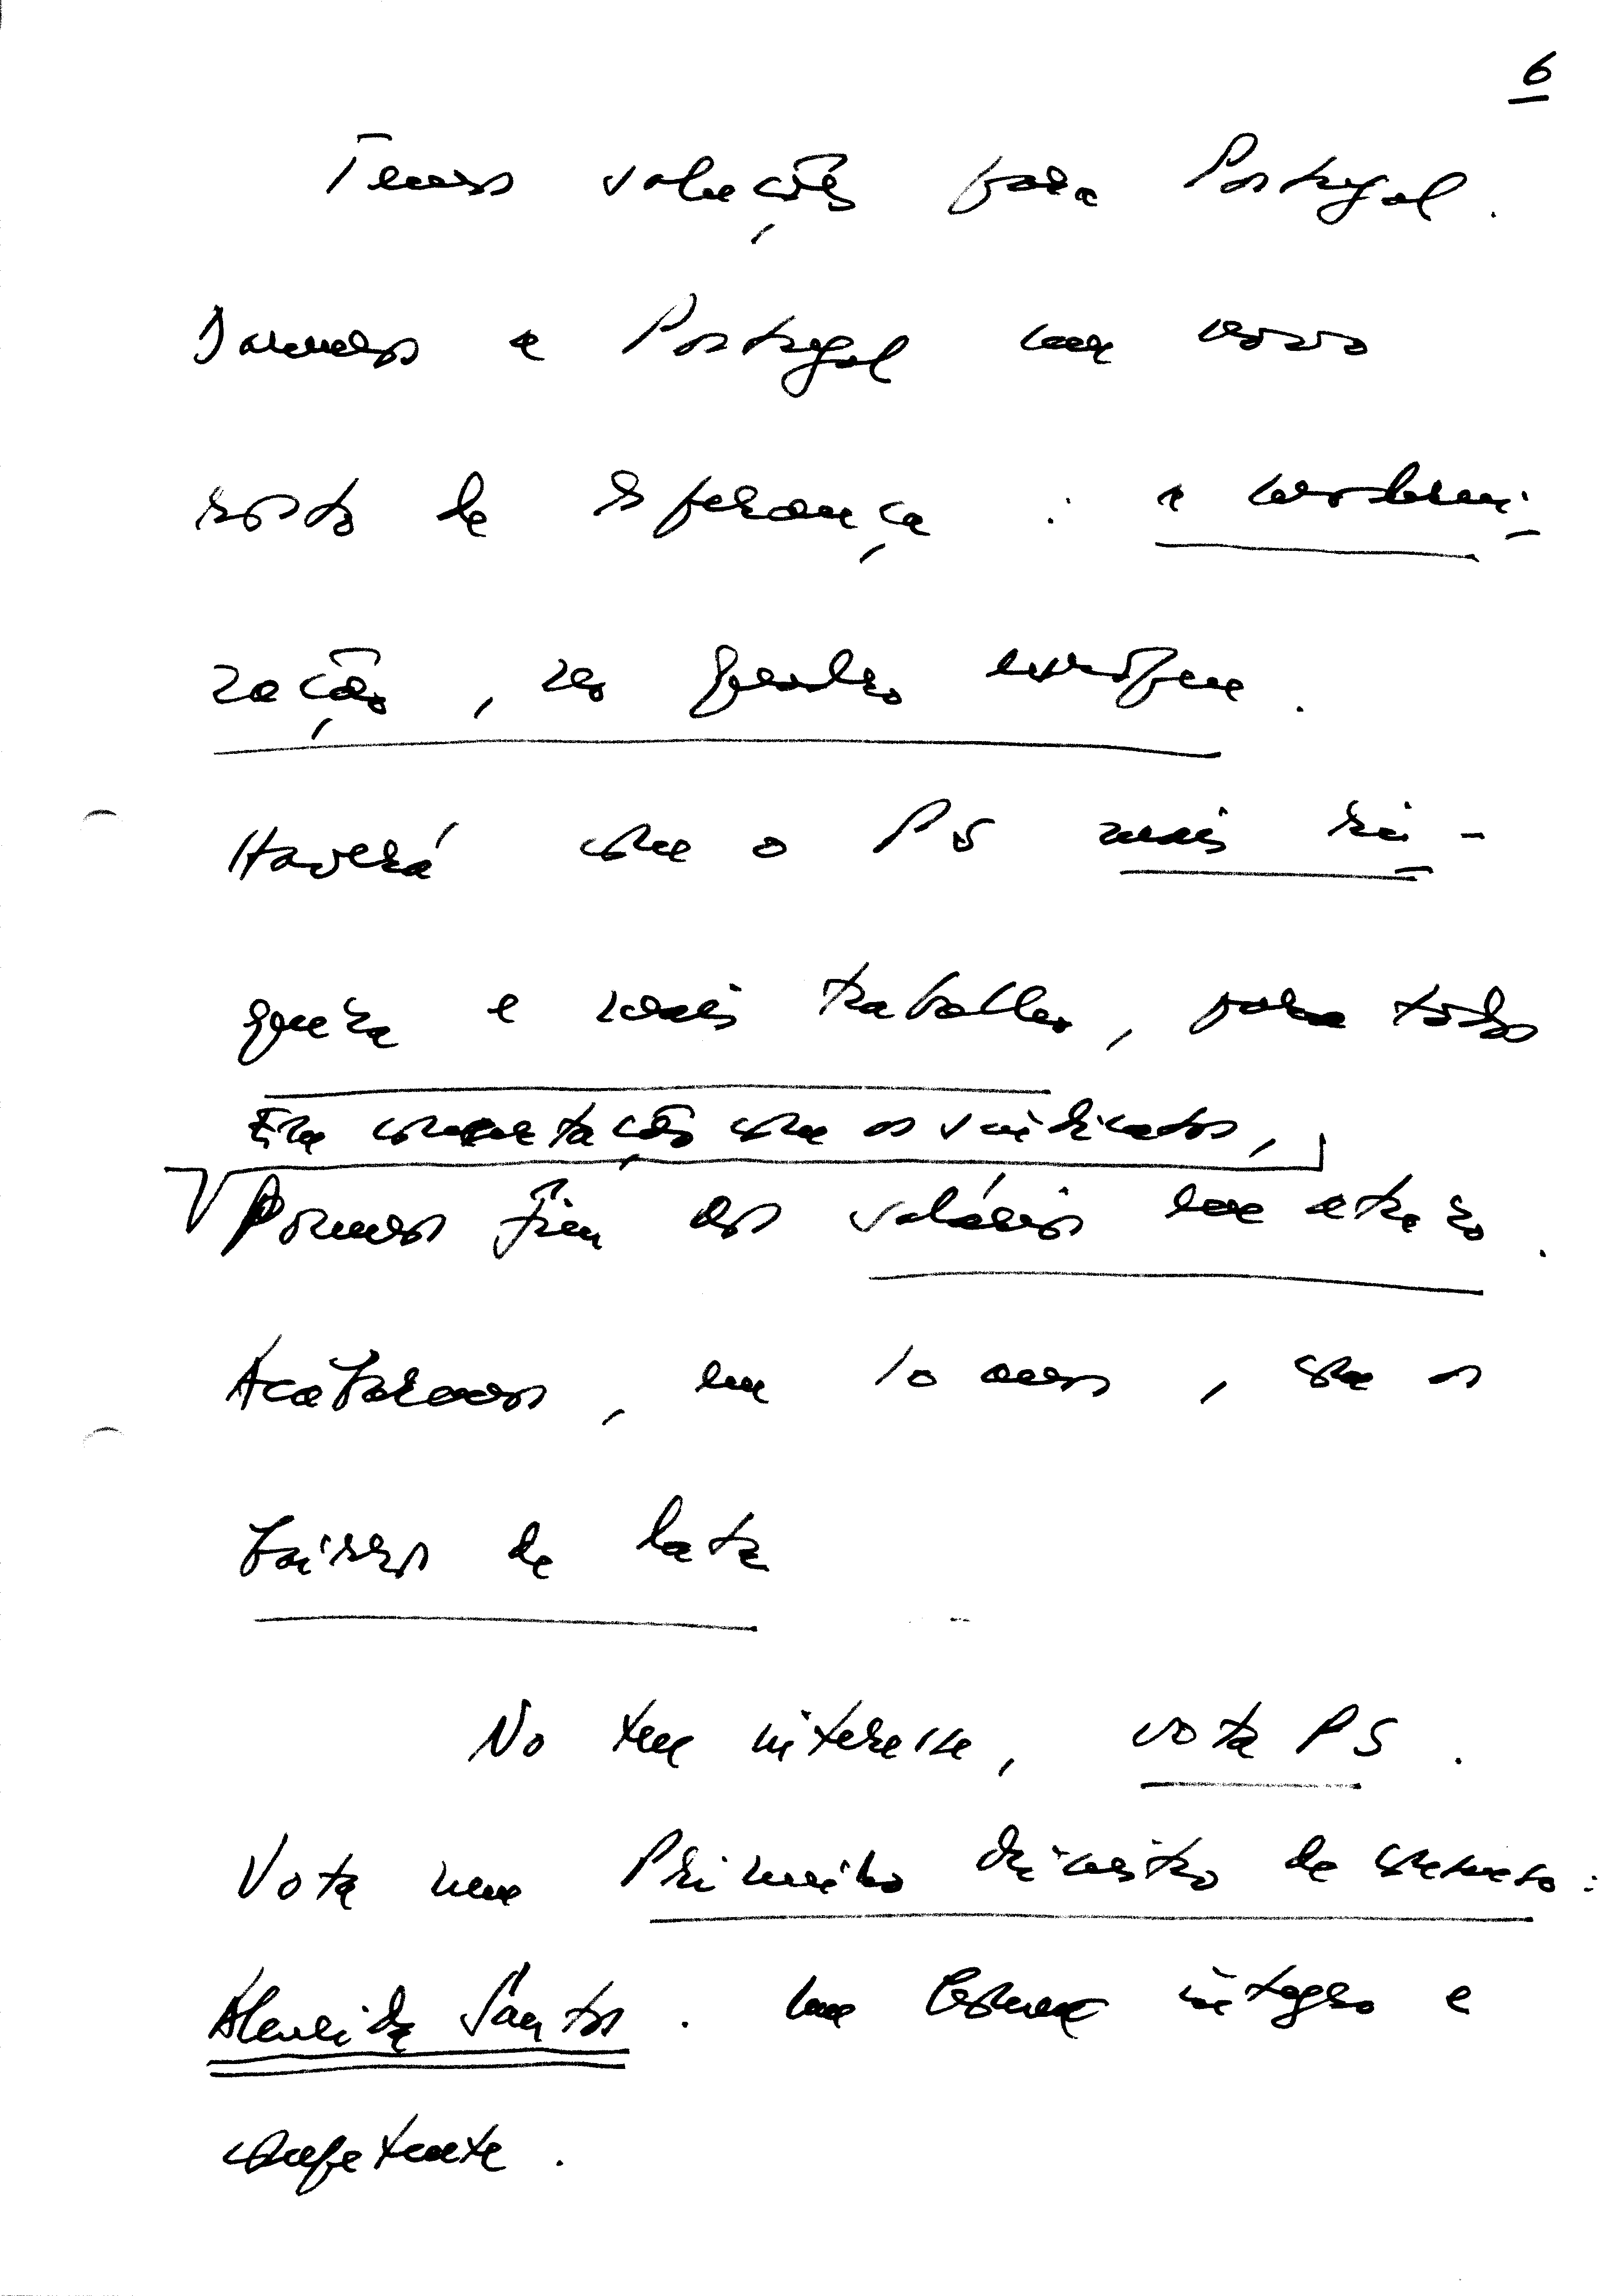 6
Temos soluções para Portugal.
Daremos a Portugal um novo
rosto de esperança: a moderni-
zação, no quadro europeu.
Haverá com o PS mais ri-
queza e mais trabalho, para todos
Em concertação com os sindicatos,
Poremos fim aos salários em atraso.
Acabaremos, em 10 anos, com os
bairros de lata
No teu interesse, vota PS.
Vota num Primeiro Ministro de consenso:
Almeida Santos. Um homem íntegro e
competente.